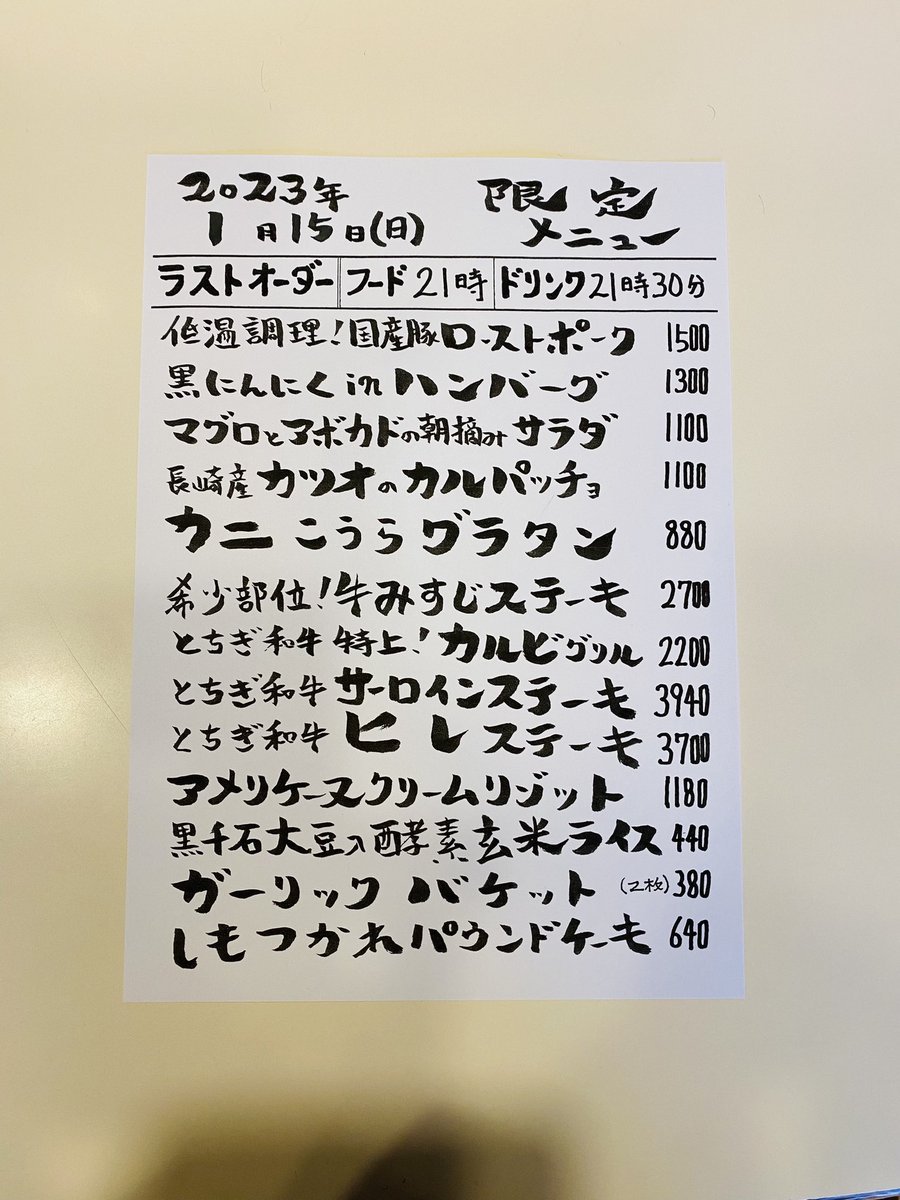 2023年 限定
1月15日(日) メニュー
ラストオーダー フード21時 ドリンク21時30分
低温調理!国産豚ローストポーク 1500
黒にんにくinハンバーグ 1300
マグロとアボカドの朝摘みサラダ 1100
長崎産カツオのカルパッチョ 1100
カニこうらグラタン 880
希少部位!牛みすじステーキ 2700
とちぎ和牛特上!カルビグリル 2200
とちぎ和牛サーロインステーキ 3940
とちぎ和牛ヒレステーキ 3700
アメリケーヌクリームリゾット 1180
黒千石大豆入酵素玄米ライス 440
ガーリックバケット(2枚) 380
しもつかれパウンドケーキ 640